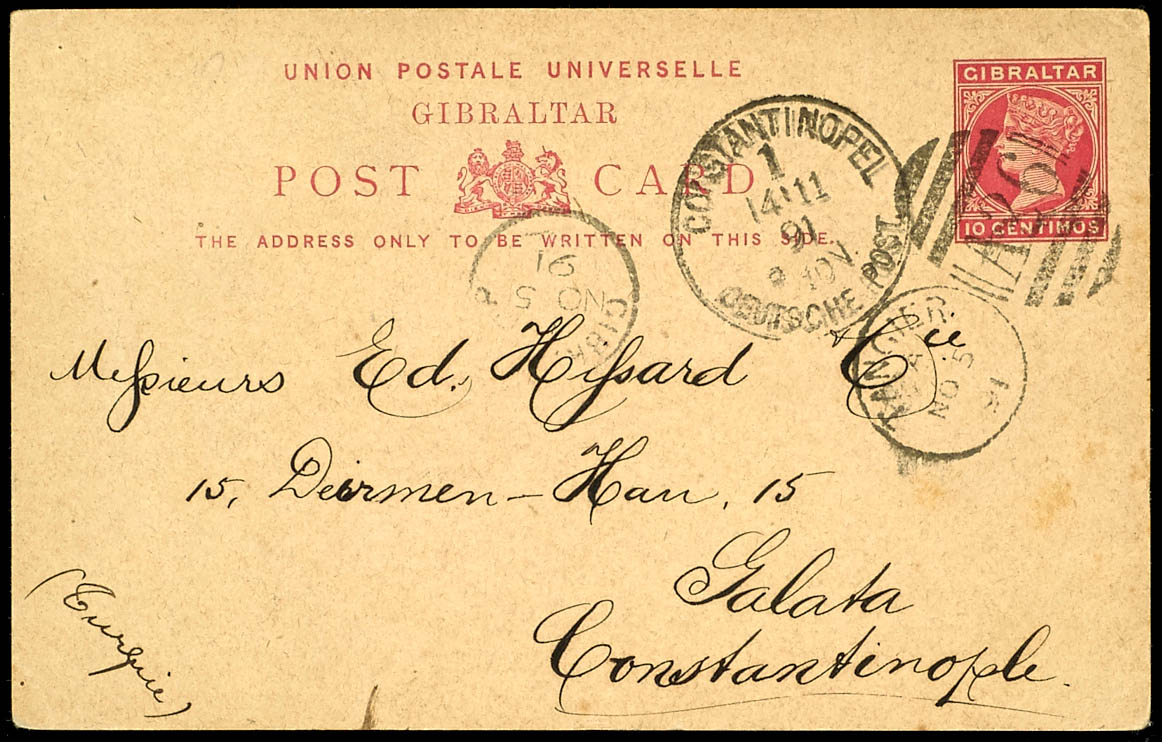 UNION POSTALE UNIVERSELLE
GIBRALTAR
POST CARD
THE ADDRESS ONLY TO BE WRITTEN ON THIS SIDE
GIBRALTAR
10 CENTIMOS
A26
CONSTANTINOPEL
1
14 11
91
10V.
DEUTSCHE POST.
GIBR
NO 5
91
TANGIER
A
NO 5
91
Messieurs Ed. Hissard & Cie
15, Deirmen-Han, 15
Galata
Constantinople.
(Turquie)